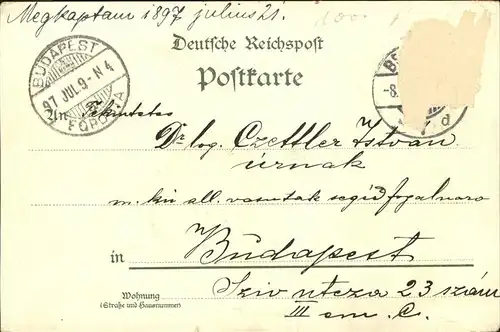 Megkaptam 1897 julius 21.
Deutsche Reichspost
Postkarte
BUDAPEST
97 JUL 9-N4
FŐPOSTA
An Tekintetes
Dr log. Czettler István
úrnak
m. kir áll. vasutak segéd fogalmazó
in Budapest
Wohnung
(Straße und Hausnummer)
Sziv utcza 23 szám
III em. C.